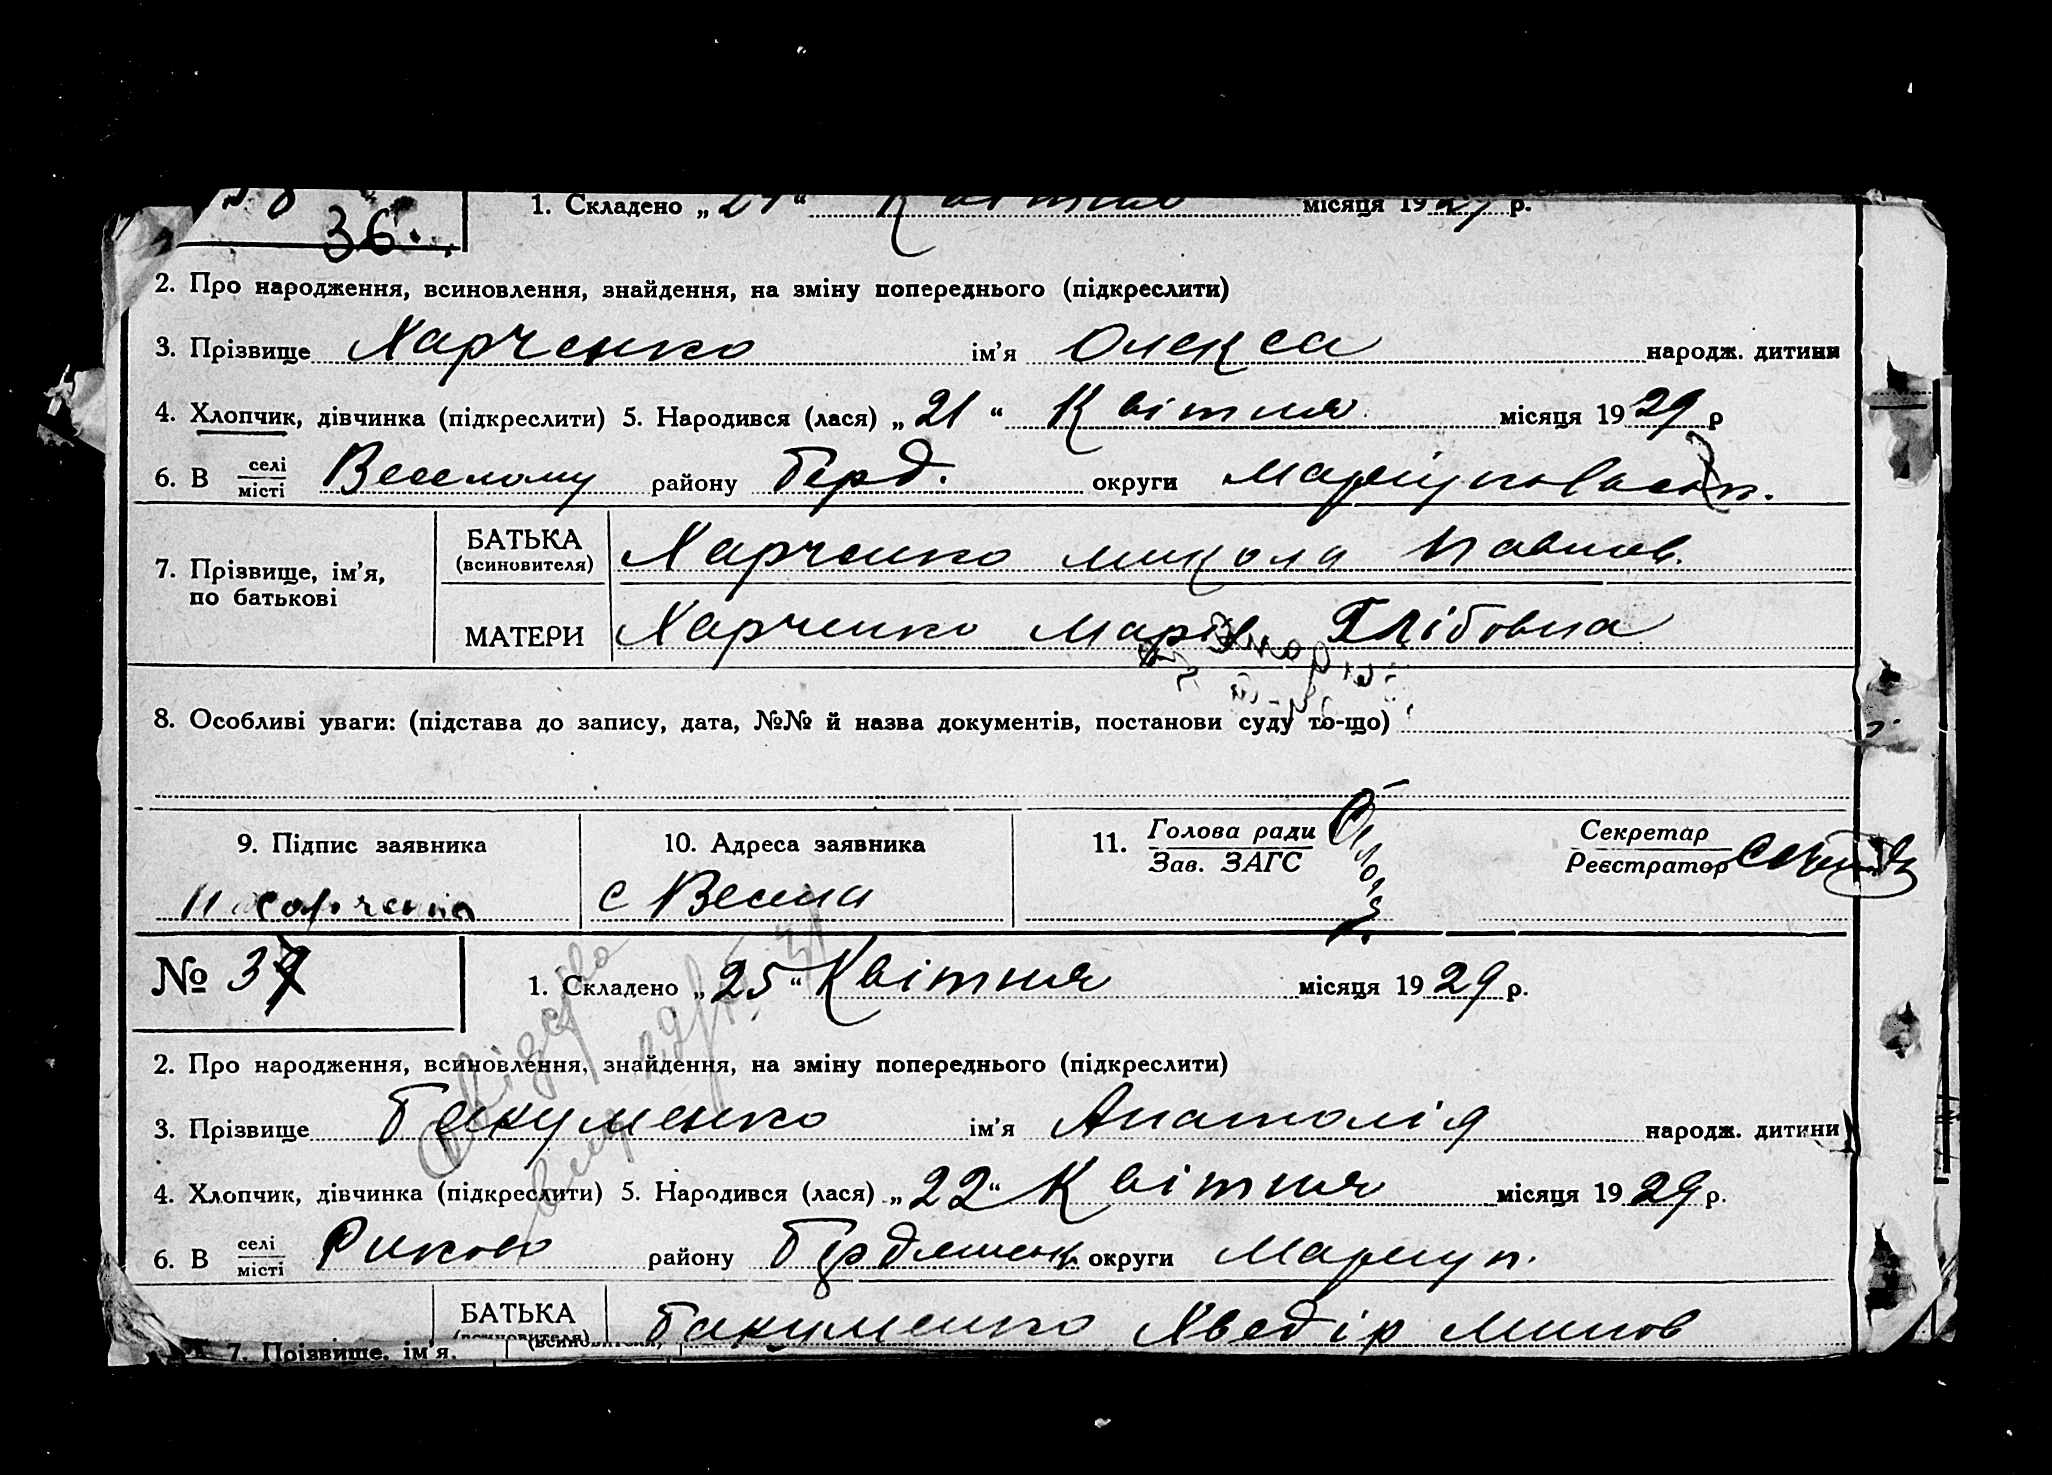 36.
1. Складено „ 24 “ Квітня місяця 1929 р.
2. Про народження, всиновлення, знайдення, на зміну попереднього (підкреслити)
3. Прізвище Харченко ім’я Олекса народж. дитини
4. Хлопчик, дівчинка (підкреслити) 5. Народився (лася) „ 21 “ Квітня місяця 1929 р
6. В селі місті Веселому району Берд. округи
7. Прізвище, ім’я, по батькові
БАТЬКА (всиновителя) Харченко микола Павлов.
МАТЕРИ Харченко Марія Глібовна
8. Особливі уваги: (підстава до запису, дата, №№ й назва документів, постанови суду то-що)
9. Підпис заявника 10. Адреса заявника 11. Голова ради Зав. ЗАГС Секретар Реєстратор
с Весела
№ 37 1. Складено „ 25 “ Квітня місяця 1929 р.
2. Про народження, всиновлення, знайдення, на зміну попереднього (підкреслити)
3. Прізвище Бакуменко ім’я Анатолія народж. дитини
4. Хлопчик, дівчинка (підкреслити) 5. Народився (лася) „ 22 “ Квітня місяця 1929 р.
6. В селі місті Риково району округи Мариуп.
БАТЬКА (всиновителя) Бакуменко Хведір
7. Прізвище, ім’я.